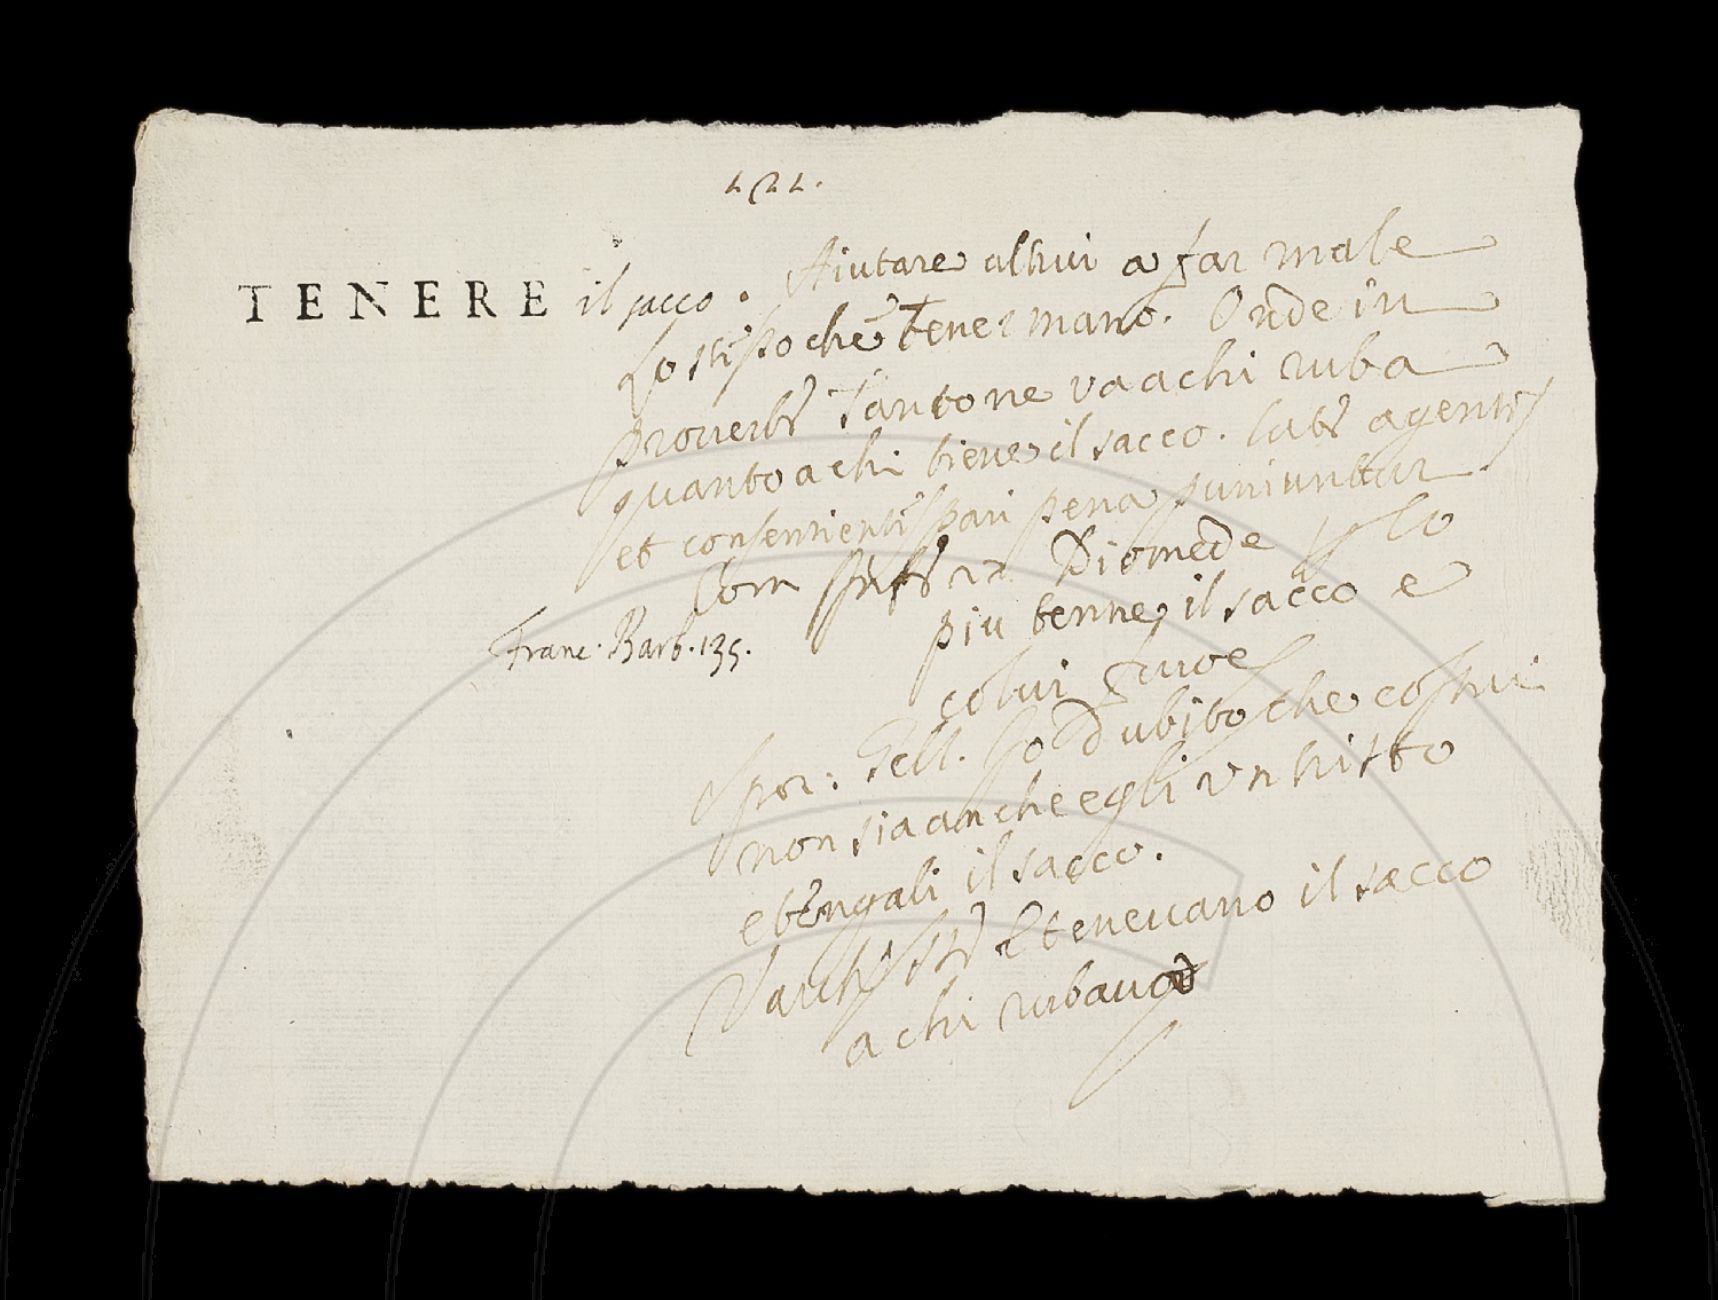 TENERE il sacco. Aiutare altrui a far male
Lo stesso che Tener mano. Onde in
proverb Tanto ne va a chi ruba
quanto a chi tiene il sacco. agentes
et consentientes pari pena puniuntur
Diomede lo
Franc. Barb. 135.
più tenne il sacco e
colui
Spor: Gell. Io dubito che costui
non sia anche egli un tristo
e tengali il sacco.
Varch. St. E tenevano il sacco
a chi rubava